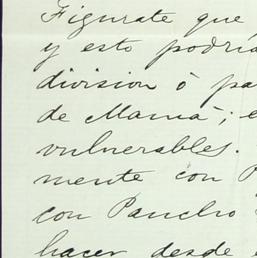 Figurate que,
y esto podría
division ó pa
de Mamá; e
vulnerables.
mente con P
con Pancho
hacer desde